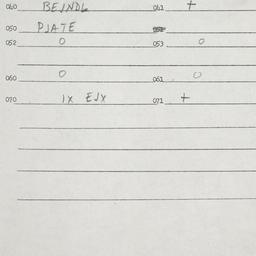 060 BEJNDL 061 +
050 PJATE
052 O 053 O
060 O 061 O
070 IX EJX 071 +